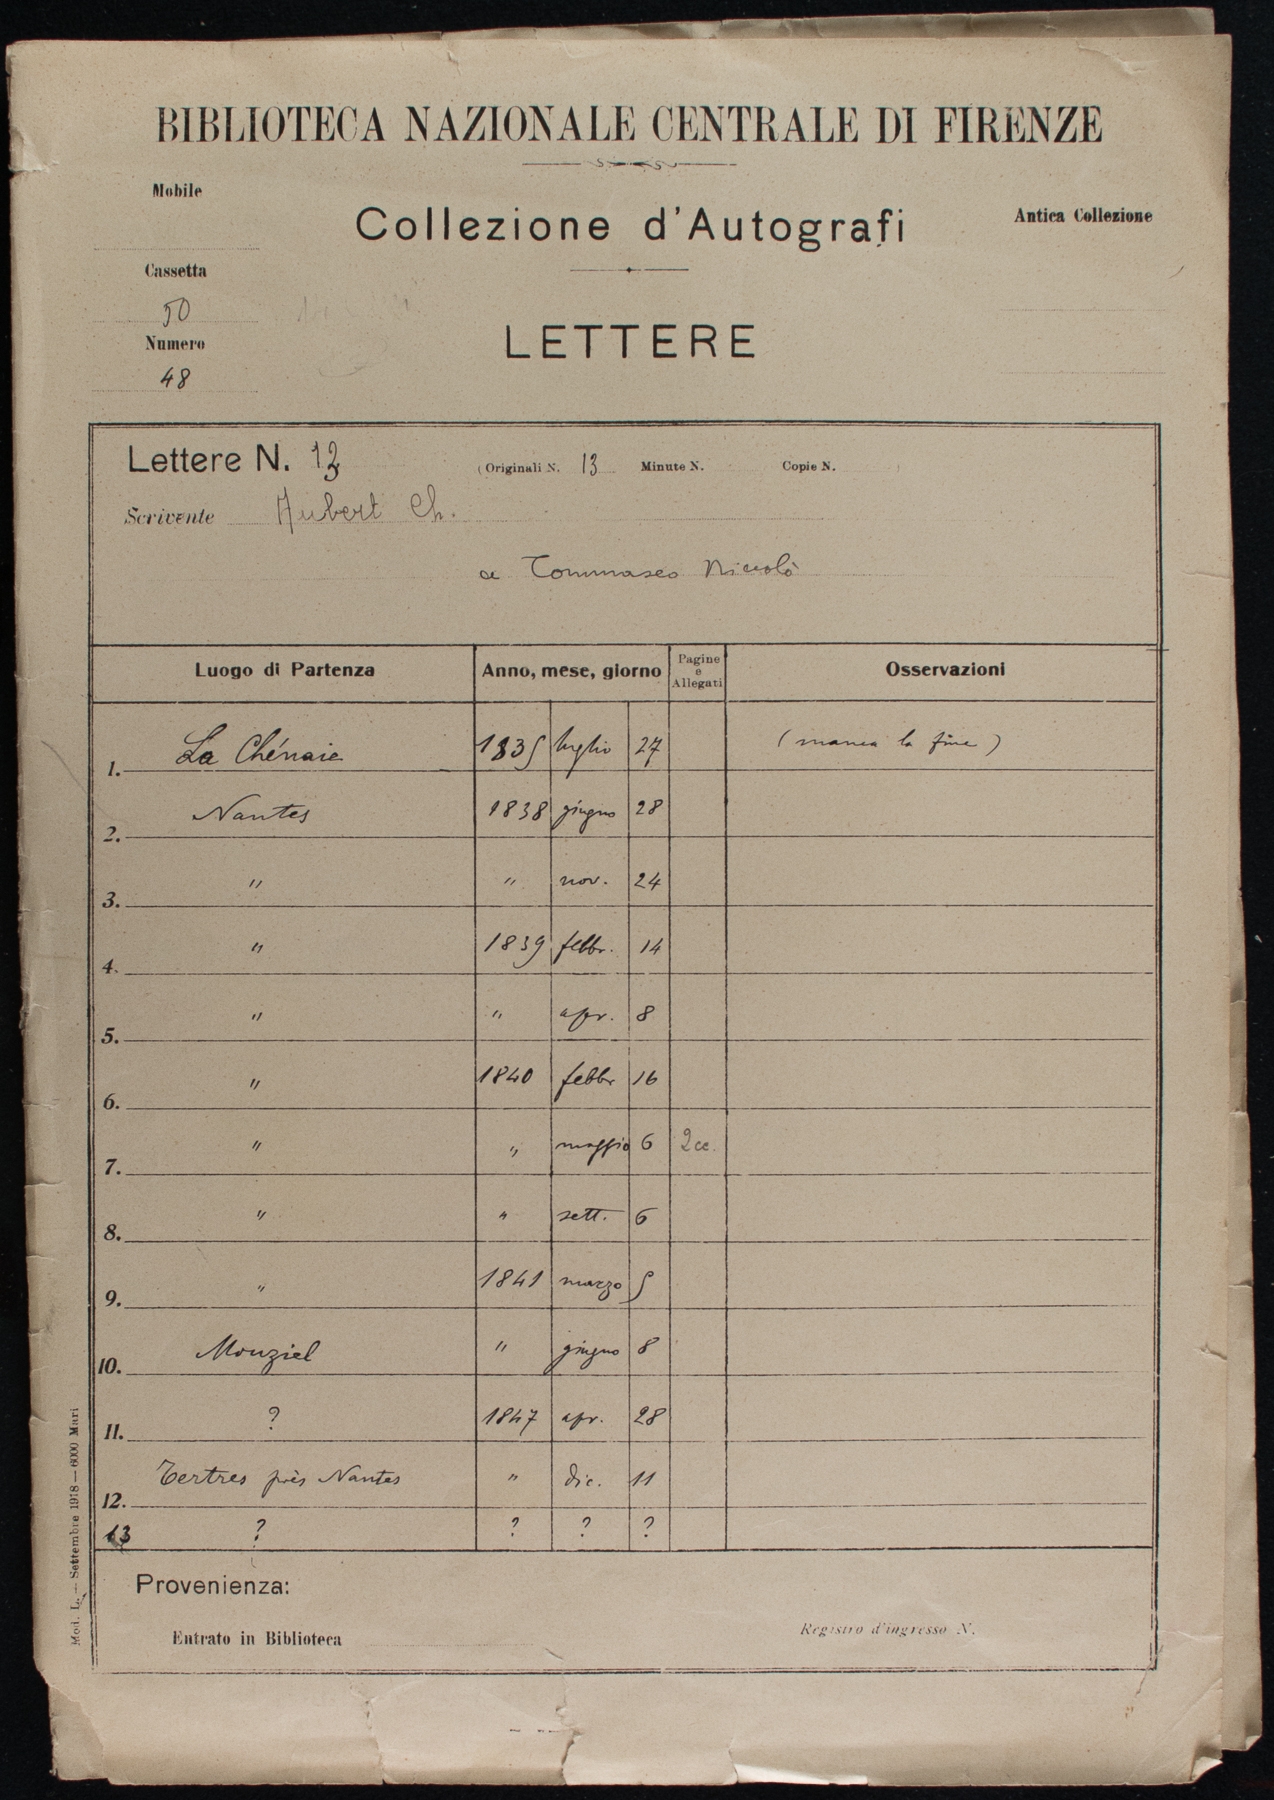 BIBLIOTECA NAZIONALE CENTRALE DI FIRENZE
Mobile
Collezione d'Autografi
Antica Collezione
Cassetta
50
LETTERE
Numero
48
Lettere N. 13 (Originali N. 13 Minute N. Copie N. )
Scrivente Hubert Ch.
a Tommaseo Niccolò
Luogo di Partenza Anno, mese, giorno Pagine e Allegati Osservazioni
1. La Chênaie 1835 luglio 27 (manca la fine)
2. Nantes 1838 giugno 28
3. " " nov. 24
4. " 1839 febbr. 14
5. " " apr. 8
6. " 1840 febbr 16
7. " " maggio 6 2cc.
8. " " sett. 6
9. " 1841 marzo 5
10. Mouziel " giugno 8
11. ? 1847 apr. 28
12. Tertres près Nantes " dic. 11
13 ? ? ? ?
Provenienza:
Entrato in Biblioteca
Registro d'ingresso N.
Mod. L. — Settembre 1918 — 6000 Mari